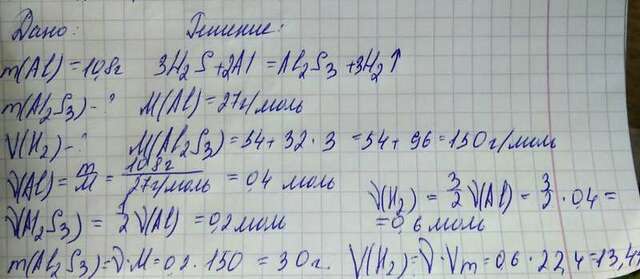 Дано: Решение:
m(Al) = 10,8г 3H₂S + 2Al = Al₂S₃ + 3H₂↑
m(Al₂S₃) - ? M(Al) = 27г/моль
V(H₂) - ? M(Al₂S₃) = 54 + 32 · 3 = 54 + 96 = 150 г/моль
ν(Al) = m/M = 10,8г/27г/моль = 0,4 моль
ν(Al₂S₃) = 1/2 ν(Al) = 0,2 моль
ν(H₂) = 3/2 ν(Al) = 3/2 · 0,4 =
= 0,6 моль
m(Al₂S₃) = ν · M = 0,2 · 150 = 30г. V(H₂) = ν · Vm = 0,6 · 22,4 = 13,4